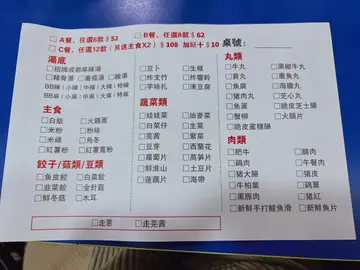 □ A餐，任選6款 $ 52
□ B餐，任選8款 $ 62
□ C餐，任選12款（另送主食X2）$ 108 加餸十 $ 10
桌號：
湯底
□招牌成都麻辣湯
□豬骨湯 □番茄湯 □酸湯
BB辣 | 小辣 | 中辣 | 大辣 | 特辣
BB麻 | 小麻 | 中麻 | 大麻 | 特麻
主食
□白飯 □火鍋面
□米粉 □粉絲
□米線 □烏冬
□紅薯粉 □紅薯寬粉
餃子/菇類/豆類
□魚皮餃 □白菜餃
□韭菜餃 □金針菇
□鮮冬菇 □木耳
□豆卜 □生根
□炸支竹 □炸響鈴
□芋絲扎 □凍豆腐
蔬菜類
□娃娃菜 □油麥菜
□白菜仔 □生菜
□芫茜 □紫菜
□豆芽 □西蘭花
□蘿蔔片 □萵筍片
□鮮淮山 □土豆片
□蓮藕片 □海帶
丸類
□牛丸 □黑椒牛丸
□貢丸 □墨魚丸
□魚腐 □龍蝦丸
□豬肉丸 □芝心丸
□魚蛋 □脆皮芝士腸
□蟹柳 □火鍋片
□脆皮蜜糖腸
肉類
□肥牛 □腩肉
□雞肉 □午餐肉
□豬大腸 □豬皮
□牛柏葉 □雞翼
□黑豚肉 □豬紅
□新鮮手打鯪魚滑 □新鮮魚片
□走蔥 □走芫茜